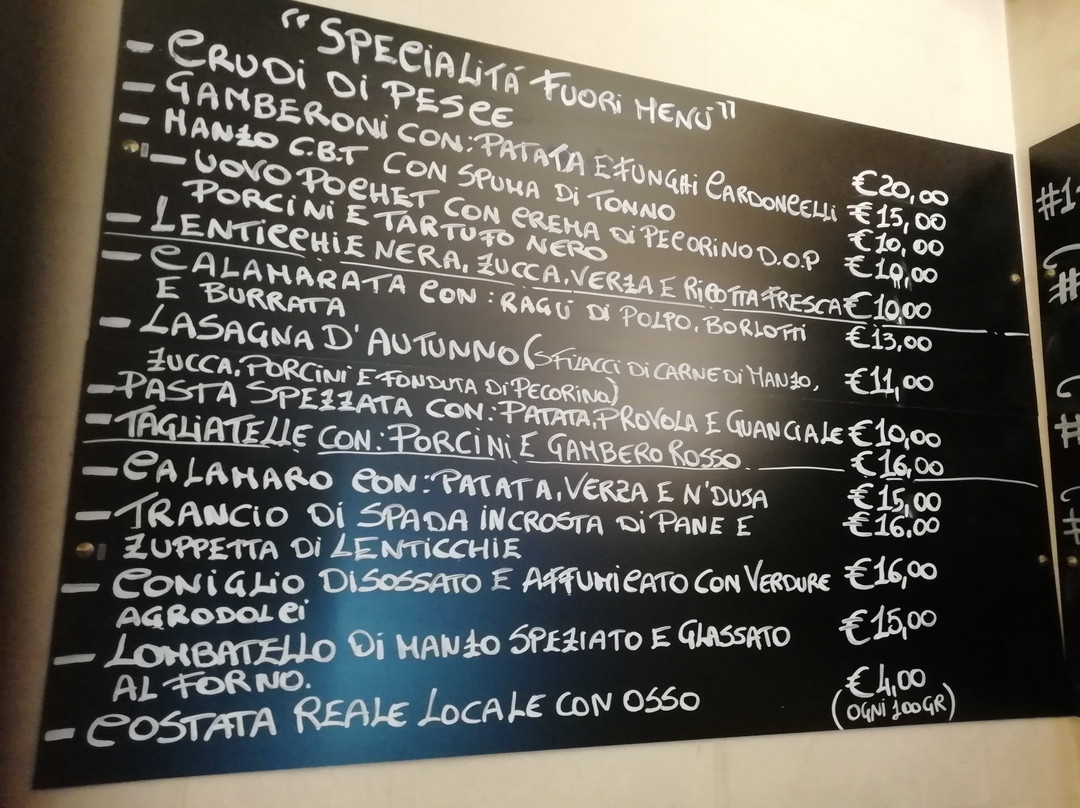 "SPECIALITÁ FUORI MENÚ"
- CRUDI DI PESCE €20,00
- GAMBERONI CON: PATATA E FUNGHI CARDONCELLI €15,00
- MANZO C.B.T CON SPUMA DI TONNO €10,00
- UOVO POCHET CON CREMA DI PECORINO D.O.P €10,00
PORCINI E TARTUFO NERO
- LENTICCHIE NERA, ZUCCA, VERZA E RICOTTA FRESCA €10,00
- CALAMARATA CON: RAGÚ DI POLPO, BORLOTTI €13,00
E BURRATA
- LASAGNA D'AUTUNNO (SFILACCI DI CARNE DI MANZO, €11,00
ZUCCA, PORCINI E FONDUTA DI PECORINO)
- PASTA SPEZZATA CON: PATATA, PROVOLA E GUANCIALE €10,00
- TAGLIATELLE CON: PORCINI E GAMBERO ROSSO €16,00
- CALAMARO CON: PATATA, VERZA E N'DUJA €15,00
- TRANCIO DI SPADA IN CROSTA DI PANE E €16.00
ZUPPETTA DI LENTICCHIE
- CONIGLIO DISOSSATO E AFFUMICATO CON VERDURE €16,00
AGRODOLCI
- LOMBATELLO DI MANZO SPEZIATO E GLASSATO €15,00
AL FORNO.
- COSTATA REALE LOCALE CON OSSO €4,00
(OGNI 100GR)